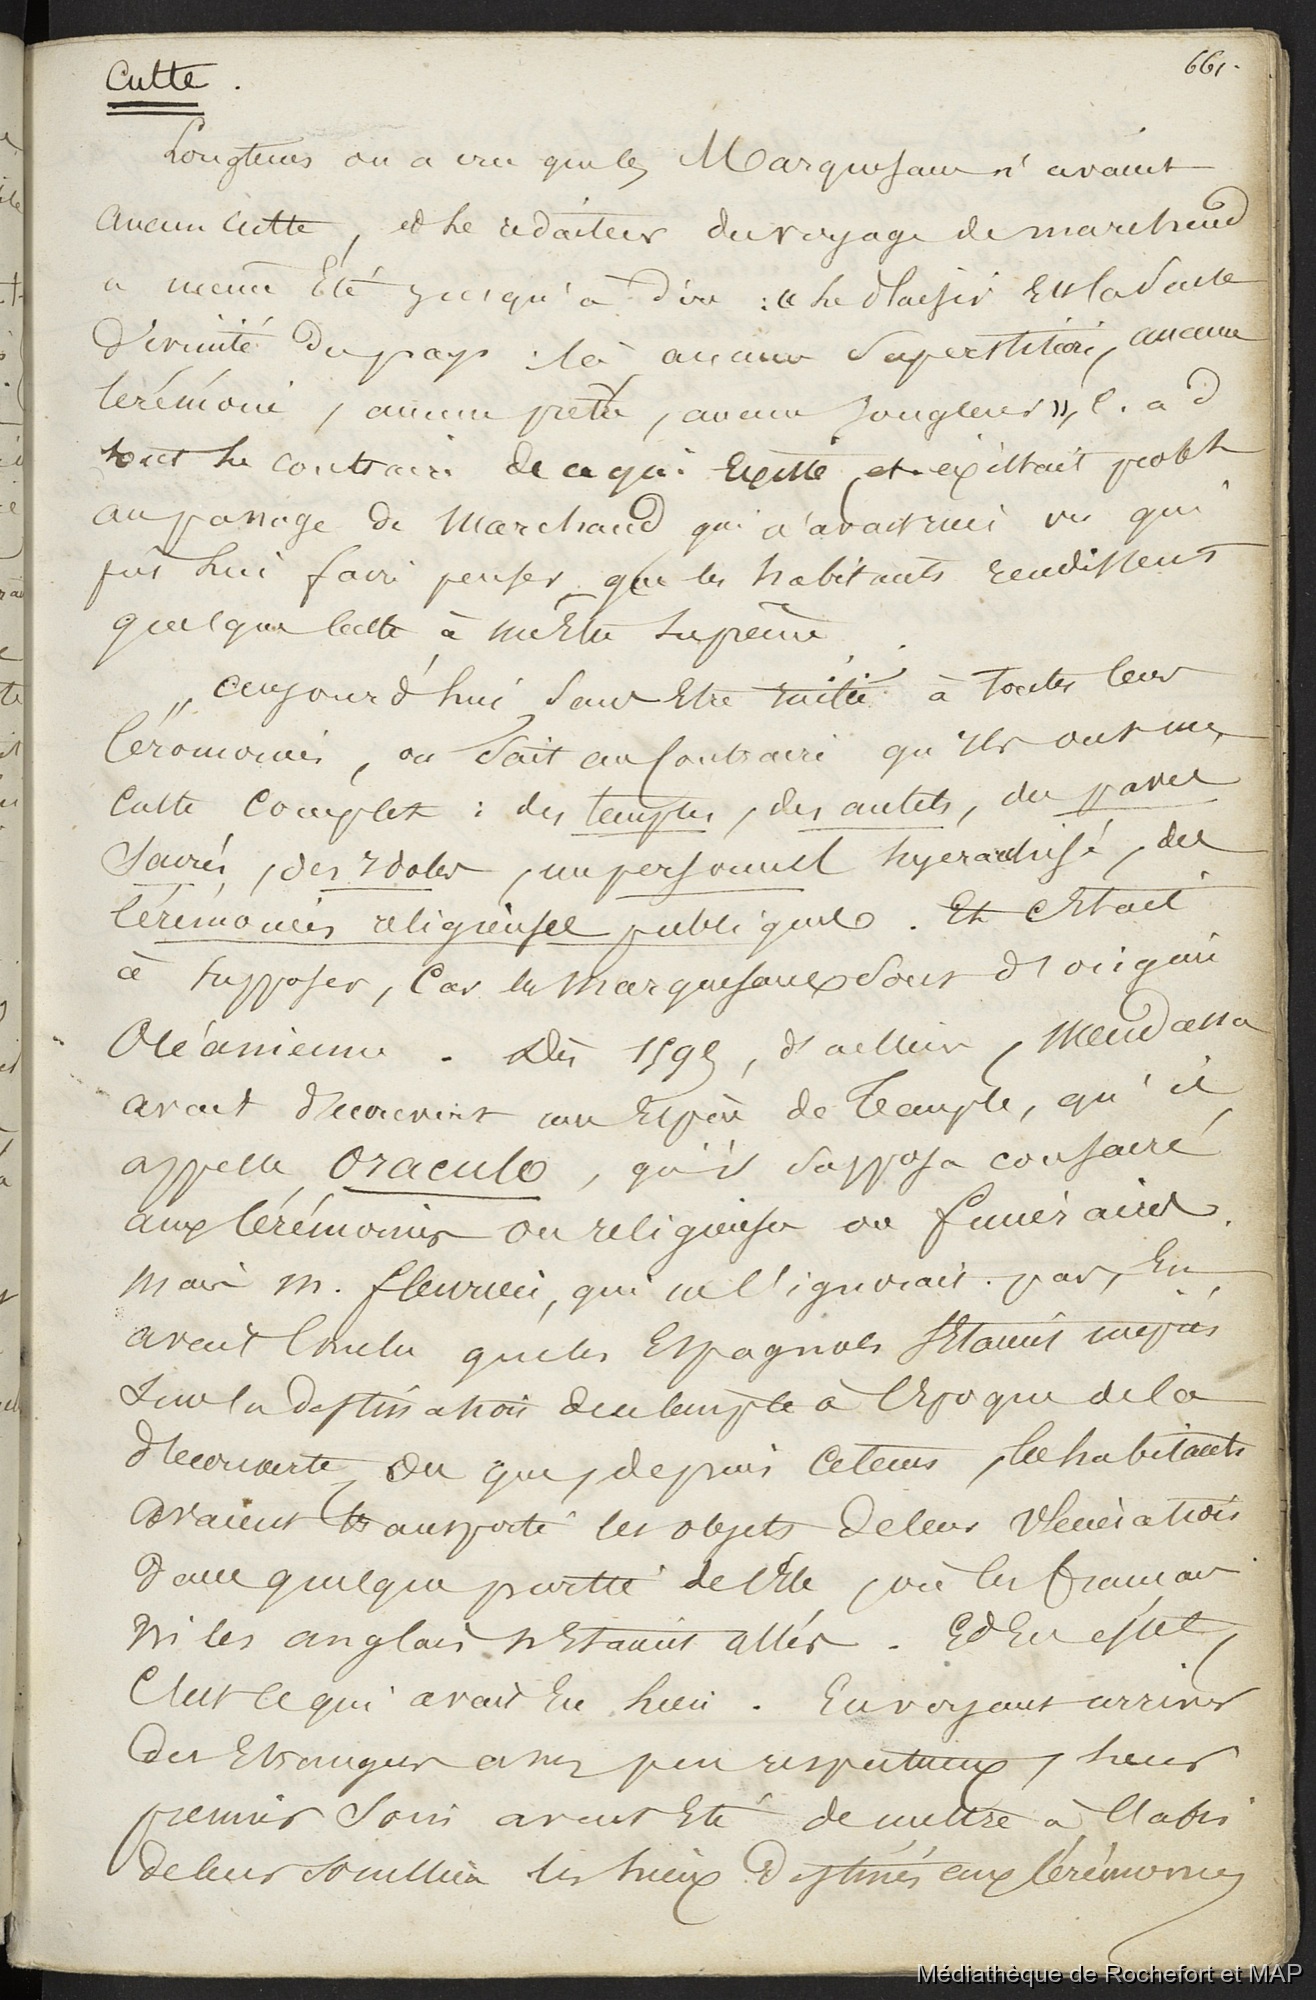 661.
Culte.
Longtems on a cru que les Marquesans n'avaient
aucun culte, et le rédacteur du voyage de marchand
a même été jusqu'à dire : « le plaisir est la seule
divinité du pays : là aucune superstition, aucune
cérémonie, aucun prêtre, aucun jongleur », c. a d
tout le contraire de ce qui existe et existait probt
au passage de Marchand qui n'avait rien vu qui
pût lui faire penser que les habitants rendissent
quelque culte à un Être suprême
aujourd'hui, sans être initié à toutes leurs
Cérémonies, on sait au contraire qu'ils ont un
culte complet : des temples, des autels, des pavés
sacrés, des idoles, un personnel hyerarchisé, des
cérémonies religieuses publiques. Et c'était
à supposer, car les Marquesans sont d'origine
Océanienne. Dès 1595, d'ailleurs, Mendana
avait découvert une espèce de Temple, qu'il
appelle Oraculo, qu'il supposa consacré
aux cérémonies ou religieuses ou funéraires.
Mais M. fleurieu, qui ne l'ignorait pas, en
avait conclu que les Espagnols s'étaient mépris
sur la destination de ce temple à l'époque de la
découverte, ou que, depuis ce tems, les habitants
avaient transporté les objets de leur vénération
dans quelque partie de l'île, où les français
ni les anglais n'étaient allés. Et en effet,
c'est ce qui avait eu lieu. En voyant arriver
des étrangers assez peu respectueux, leur
premier soin avait été de mettre à l'abri
de leur souillure les lieux destinés aux cérémonies
Médiathèque de Rochefort et MAP